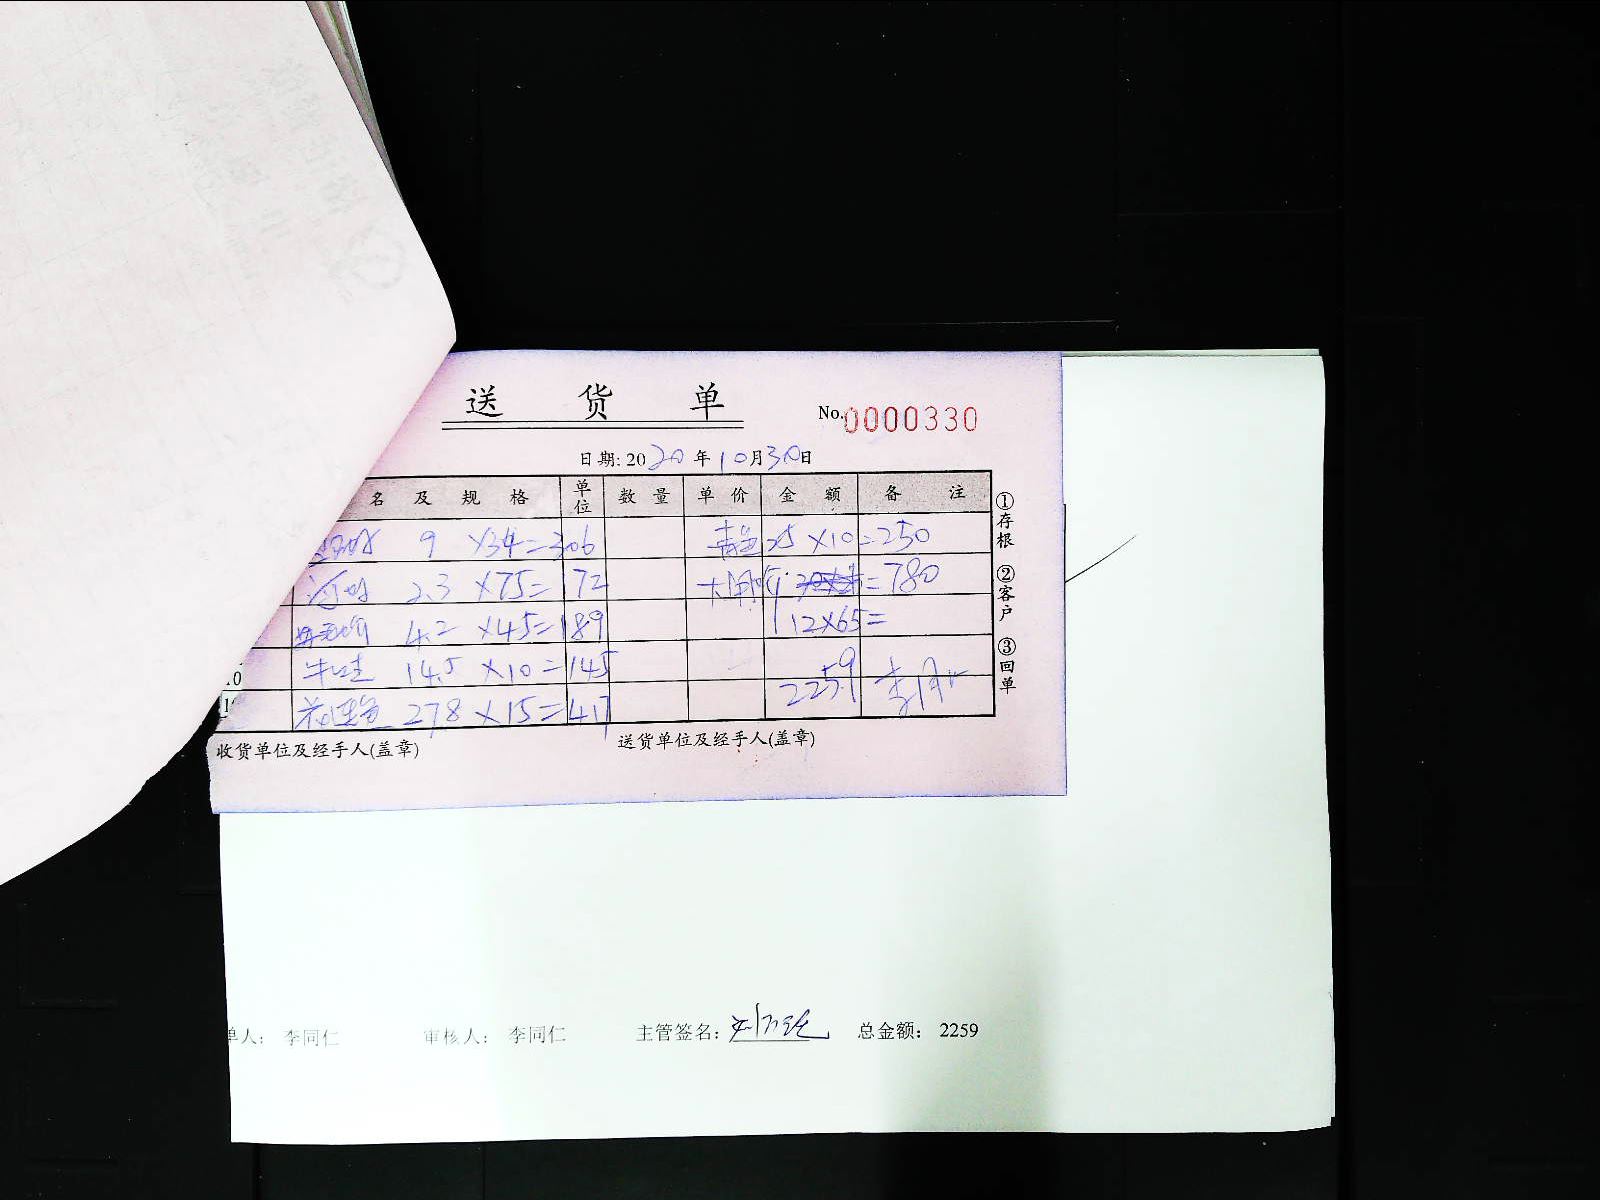 送货单
No.0000330
日期: 2020年10月30日
名及规格 单位 数量 单价 金额 备注
9 ×34=306 25 ×10=250
2.3 ×75=172 =780
4.2 ×45=189 12×65=
牛蛙 14.5 ×10=145
278 ×15=417 2259
①存根 ②客户 ③回单
收货单位及经手人(盖章) 送货单位及经手人(盖章)
单人: 李同仁 审核人: 李同仁 主管签名: 总金额: 2259